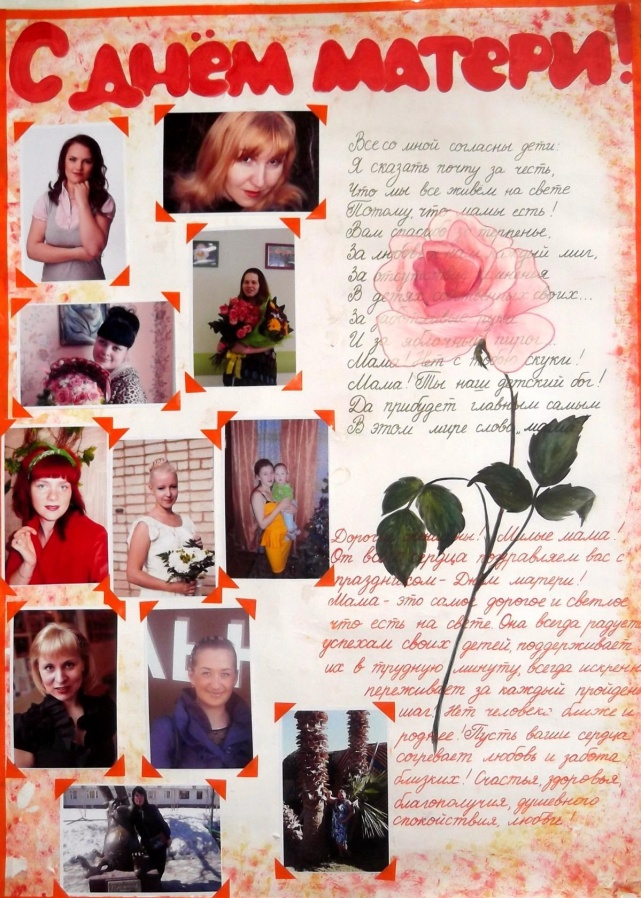 С днём матери!
Все со мной согласны дети:
Я сказать почту за честь,
Что мы все живём на свете
Потому, что мамы есть!
Вам спасибо за терпенье,
За каждый миг,
За отсутствие
В детях своих...
За
И за яблочный пирог...
Мама! Нет с тобою скуки!
Мама! Ты наш детский бог!
Да прибудет главным самым
В этом мире слово „мама"
Дорогие женщины! Милые мама!
От всего сердца поздравляем вас с
праздником - Днём матери!
Мама - это самое дорогое и светлое,
что есть на свете. Она всегда радуется
успехам своих детей, поддерживает
их в трудную минуту, всегда искренне
переживает за каждый пройден
шаг. Нет человека ближе и
роднее! Пусть ваши сердца
согревает любовь и забота
близких! Счастья, здоровья,
благополучия, душевного
спокойствия, любви!
ЛЬН